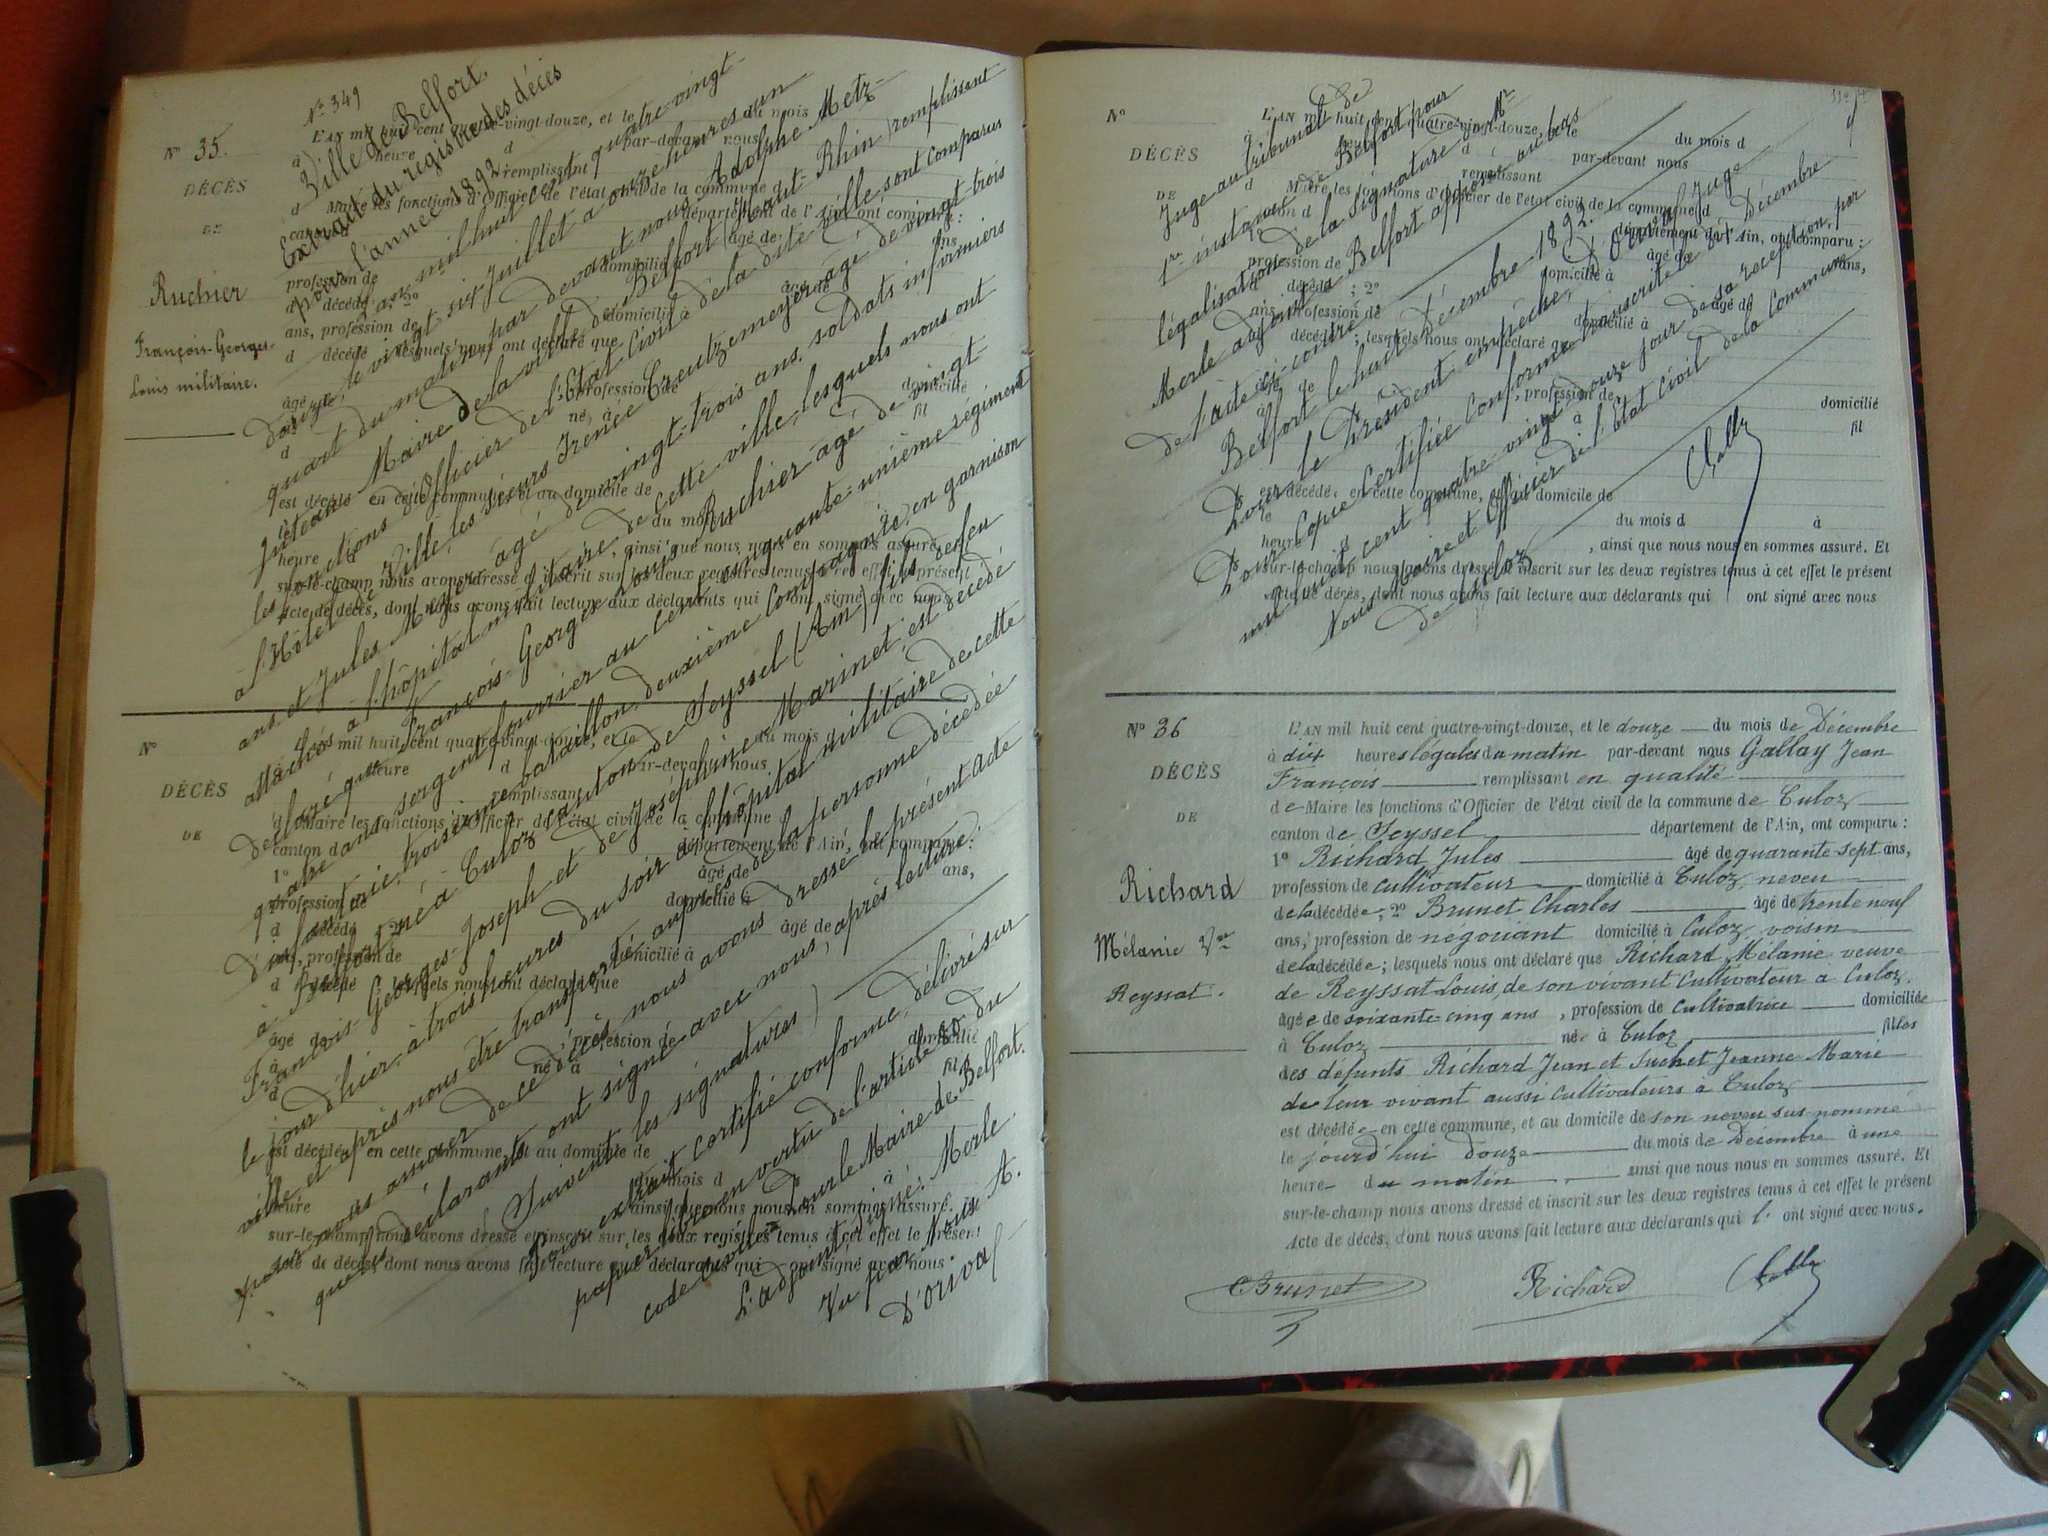 N° 35.
DÉCÈS
DE
Ruchier
François-Georges-
Louis militaire.
N° 349
Ville de Belfort.
Extrait du registre des décès
pour l'année 1892
L'an mil huit cent quatre-vingt-
douze, le vingt six Juillet à onze heures un
quart du matin, par devant nous Adolphe Metz-
Juteau Maire de la ville de Belfort (Haut-Rhin) remplissant
les fonctions d'Officier de l'Etat civil de la dite ville sont comparus
à l'Hôtel de Ville les sieurs Irénée Creutzemeyer âgé de vingt trois
ans et Jules Meyer âgé de vingt-trois ans. soldats infirmiers
attachés à l'hôpital militaire de cette ville, lesquels nous ont
déclaré que François-Georges-Louis Ruchier âgé de vingt-
quatre ans sergent fourrier au cent cinquante-unième régiment
d'infanterie, troisième bataillon, deuxième compagnie, en garnison
à Belfort, né à Culoz canton de Seyssel (Ain) fils de feu
François-Georges-Joseph et de Joséphine Marinet, est décédé
le jour d'hier à trois heures du soir à l'hôpital militaire de cette
ville et après nous être transporté auprès de la personne décédée
pour nous assurer de ce décès nous avons dressé le présent acte
que les déclarants ont signé avec nous, après lecture.
(Suivent les signatures)
Pour extrait certifié conforme, délivré sur
papier libre en vertu de l'article 80 du
code civil. Pour le Maire de Belfort.
L'adjoint signé: Merle
Vu par Nous A.
D'Orival
N°
DÉCÈS
DE
L'AN mil huit cent quatre-vingt-douze, et le du mois
à heure d par-devant nous
remplissant
d Maire les fonctions d'Officier de l'état civil de la commune
canton d département de l'Ain, ont comparu :
1° âgé de ans,
profession de domicilié à
d décédé ; 2° âgé de
ans, profession de domicilié à
d décédé ; lesquels nous ont déclaré que
âgé de , profession de domicilié
à né à fil
d
est décédé en cette commune, et au domicile de
le du mois d à
heure , ainsi que nous nous en sommes assuré. Et
sur-le-champ nous avons dressé et inscrit sur les deux registres tenus à cet effet le présent
Acte de décès, dont nous avons fait lecture aux déclarants qui ont signé avec nous.
N°
DÉCÈS
DE
Juge au tribunal de
1re instance de Belfort pour
légalisation de la signature de Mr
Merle adjoint à Belfort apposée au bas
de l'acte ci-contre
Belfort le huit décembre 1892.
Pour le Président empêché,
D'Orival Juge
Pour copie certifiée conforme transcrite le Décembre
mil huit cent quatre vingt douze jour de sa réception, par
Nous Maire et Officier de l'Etat civil de la Commune
de Culoz
Gallay
N° 36
DÉCÈS
DE
Richard
Mélanie Vve
Reyssat.
L'AN mil huit cent quatre-vingt-douze, et le douze du mois de Décembre
à dix heures légales du matin par-devant nous Gallay Jean
François remplissant en qualité
de Maire les fonctions d'Officier de l'état civil de la commune de Culoz
canton de Seyssel département de l'Ain, ont comparu :
1° Richard Jules âgé de quarante-sept ans,
profession de cultivateur domicilié à Culoz, neveu
de la décédée ; 2° Brunet Charles âgé de trente neuf
ans, profession de négociant domicilié à Culoz, voisin
de la décédée ; lesquels nous ont déclaré que Richard Mélanie veuve
de Reyssat Louis, de son vivant cultivateur à Culoz,
âgée de soixante-cinq ans , profession de cultivatrice domiciliée
à Culoz née à Culoz filles
des défunts Richard Jean et Suchet Jeanne-Marie
de leur vivant aussi cultivateurs à Culoz
est décédée en cette commune, et au domicile de son neveu sus nommé
le jourd'hui douze du mois de Décembre à une
heure du matin , ainsi que nous nous en sommes assuré. Et
sur-le-champ nous avons dressé et inscrit sur les deux registres tenus à cet effet le présent
Acte de décès, dont nous avons fait lecture aux déclarants qui l' ont signé avec nous.
Brunet Richard Gallay